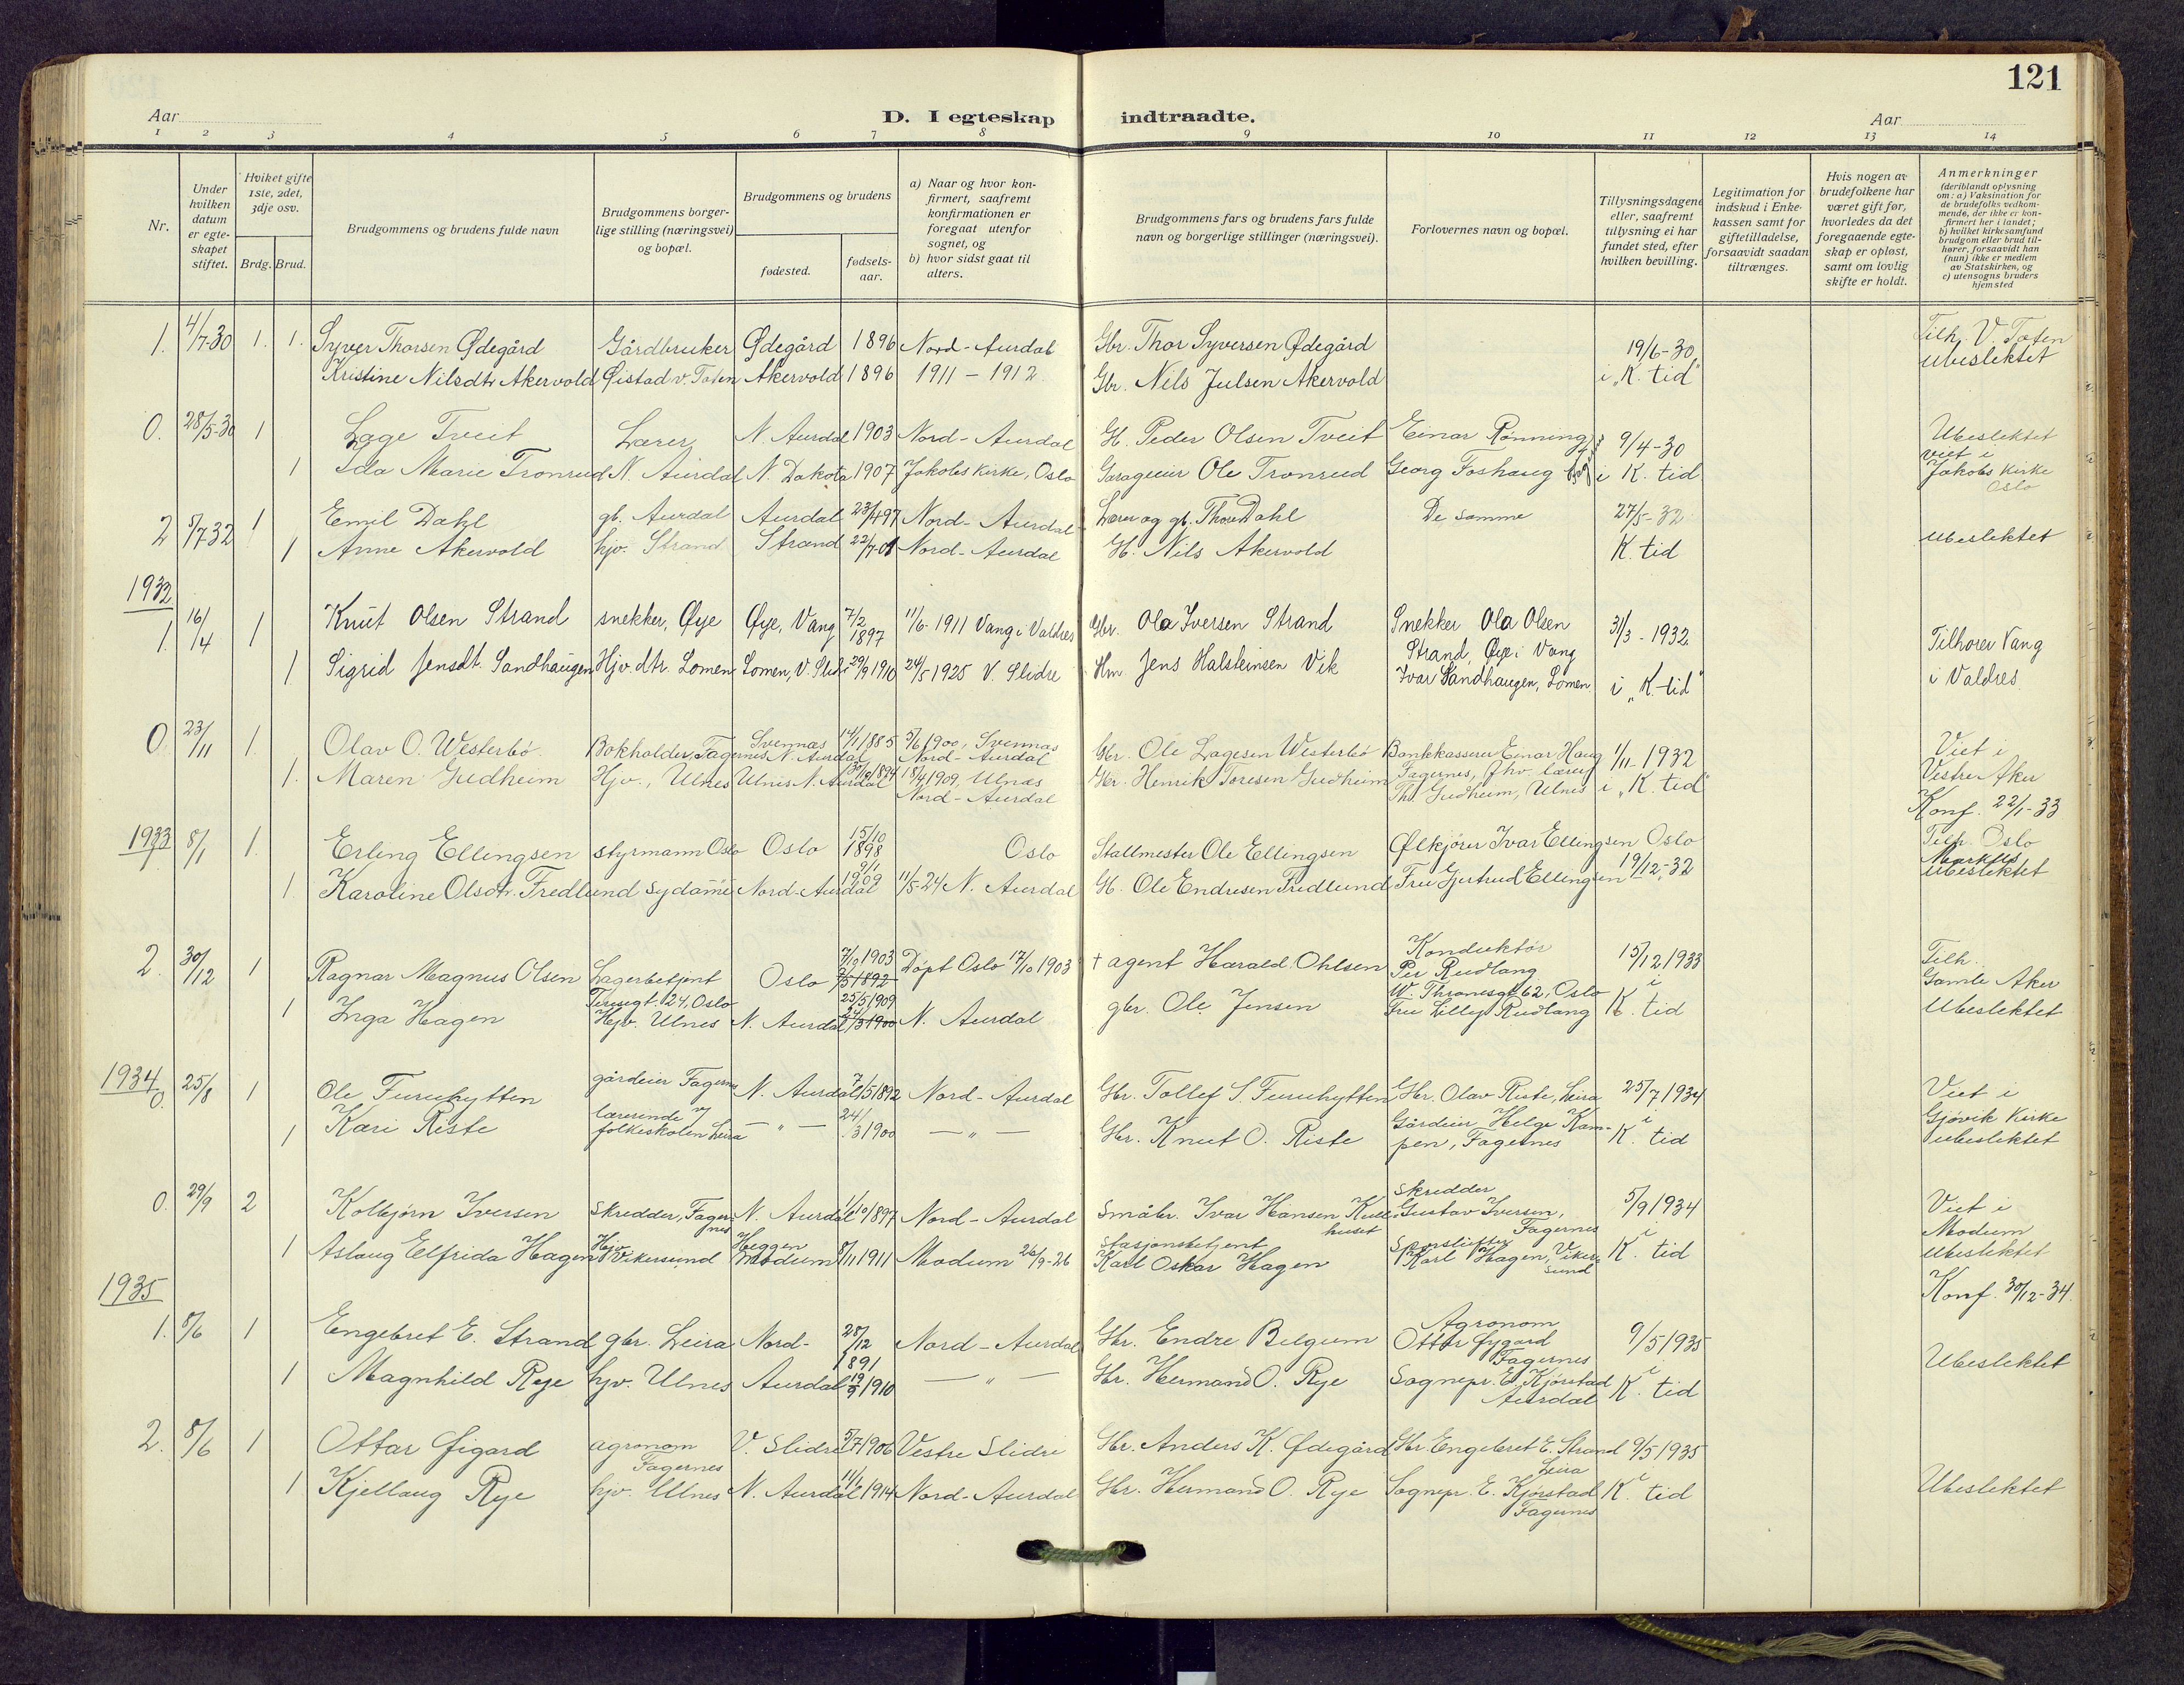 121
Aar
D. I egteskap indtraadte.
Aar
1 2 3 4 5 6 7 8 9 10 11 12 13 14
Nr.
Under hvilken datum er egte- skapet stiftet.
Hviket gifte 1ste, 2det, 3dje osv.
Brdg. Brud.
Brudgommens og brudens fulde navn
Brudgommens borger- lige stilling (næringsvei) og bopæl.
Brudgommens og brudens
fødested.
fødsels- aar.
a) Naar og hvor kon- firmert, saafremt konfirmationen er foregaat utenfor sognet, og
b) hvor sidst gaat til alters.
Brudgommens fars og brudens fars fulde navn og borgerlige stillinger (næringsvei).
Forlovernes navn og bopæl.
Tillysningsdagene eller, saafremt tillysning ei har fundet sted, efter hvilken bevilling.
Legitimation for indskud i Enke- kassen samt for giftetilladelse, forsaavidt saadan tiltrænges.
Hvis nogen av brudefolkene har været gift før, hvorledes da det foregaaende egte- skap er opløst, samt om lovlig skifte er holdt.
Anmerkninger
(deriblandt oplysning om: a) Vaksination for de brudefolks vedkom- mende, der ikke er kon- firmert her i landet; b) hvilket kirkesamfund brudgom eller brud til- hører, forsaavidt han (hun) ikke er medlem av Statskirken, og c) utensogns bruders hjemsted
1. 4/7-30 1. 1. Syver Thorsen Ødegård Gårdbruker Ødegård 1896 Nord-Aurdal Gbr. Thor Syversen Ødegård 19/6-30 Tilh. V. Toten
Kristine Nilsdtr Akervold Øistad v. Toten Akervold 1896 1911 - 1912 Gbr. Nils Julsen Akervold i "K. tid" ubeslektet
0. 28/5-30 1 Lage Tveit Lærer N. Aurdal 1903 Nord-Aurdal G. Peder Olsen Tveit Einar Rønning 9/4-30 Ubeslektet
viet i
1 Ida Marie Tronrud N. Aurdal N. Dakota 1907 Jakobs Kirke, Oslo Garageeier Ole Tronrud Georg Foshaug i K. tid Jakobs Kirke
Oslo
2 5/7 32 1 Emil Dahl gb. Aurdal Aurdal 23/4 97 Nord-Aurdal Lærer og gb. Thore Dahl De samme 27/5-32 ubeslektet
1 Anne Akervold hjv. Strand Strand 22/7-01 Nord-Aurdal G. Nils Akervold K. tid
1932
1. 16/4 1 Knut Olsen Strand snekker, Øye Øye, Vang 7/2 1897 11/6-1911 Vang i Valdres Gbr. Ola Iversen Strand Snekker Ola Olsen 31/3-1932 Tilhører Vang
Strand, Øye i Vang
1 Sigrid Jensdt. Sandhaugen Hjv. dtr. Lomen Lomen, V. Slidre 29/9 1910 24/5 1925 V. Slidre Hm Jens Halsteinsen Vik Ivar Sandhaugen, Lomen i "K. tid" i Valdres
0 23/11 1. Olav O. Westerbø. Bokholder, Fagernes Svennæs N. Aurdal 14/1 1885 5/6 1900, Svennæs Nord-Aurdal Gbr. Ole Lagesen Westerbø Bankkasserer Einar Haug 1/11-1932 Viet i
Fagernes, fhv. lærer Vestre Aker
1. Maren Gudheim Hjv., Ulnes Ulnes N. Aurdal 1894 18/4 1909, Ulnæs Nord-Aurdal Gbr. Henrik Toresen Gudheim Th. Gudheim, Ulnes i "K. tid" Konf. 22/1-33
1933
1 8/1 1. Erling Ellingsen styrmann Oslo Oslo 15/10 1898 Oslo Stallmester Ole Ellingsen Ølkjører Ivar Ellingsen Oslo Tilh. Oslo
Markus
1. Karoline Olsdtr. Fredlund sydame Nord-Aurdal 9/1 1909 11/5-24 N. Aurdal G. Ole Endresen Fredlund Fru Gjertrud Ellingsen 19/12-32 ubeslektet
2. 30/12 1 Ragnar Magnus Olsen Lagerbetjent Oslo 7/9 1903 7/5 1892 Døpt Oslo 17/10 1903 + agent Harald Ohlsen Konduktør Per Rudlang 15/12 1933 Tilh.
Teresegt. 24, Oslo W. Thranesgt 62, Oslo i Gamle Aker
1 Inga Hagen Hjv. Ulnes N. Aurdal 25/5 1909 24/3 1900 N. Aurdal gbr. Ole Jensen Fru Lilly Rudlang K. tid Ubeslektet
1934
0. 25/8 1 Ole Furuhytten gårdeier Fagernes N. Aurdal 7/5 1892 Nord-Aurdal Gbr. Tollef S. Furuhytten Gbr. Olav Riste, Leira 25/7 1934 Viet i
lærerinde v/ Gårdeier Helge Kam- i Gjøvik Kirke
1 Kari Riste folkeskolen Leira — " — 24/3 1900 — " — Gbr. Knut O. Riste pen, Fagernes K. tid ubeslektet
0. 29/9 2 Kolbjørn Iversen Skredder, Fager- nes N. Aurdal 1/10 1897 Nord-Aurdal Småbr. Ivar Hansen Kulle- huset Skredder Gustav Iversen, Fagernes 5/9 1934 Viet i
Modum
1 Aslaug Elfrida Hagen Hjv. Vikersund Heggen Modum 8/11 1911 Modum 26/9-26 Stasjonsbetjent Karl Oskar Hagen Karl Hagen, Viker- sund i K. tid Ubeslektet
1935
Konf. 30/12-34.
1. 8/6 1 Engebret E. Strand gbr. Leira Nord- 28/12 1891 Nord-Aurdal Gbr. Endre Belgum Agronom Ottar Øygard Fagernes 9/5 1935
Ubeslektet
1 Magnhild Rye hjv. Ulnes Aurdal 19/9 1910 — " — Gbr. Hermand O. Rye Sognepr. E. Kjørstad Aurdal i K. tid
2. 8/6 1 Ottar Øigard agronom Fagernes V. Slidre 5/7 1906 Vestre Slidre Gbr. Anders K. Ødegård Gbr. Engebret E. Strand Leira 9/5 1935
1 Kjellaug Rye hjv. Ulnes N. Aurdal 11/1 1914 Nord-Aurdal Gbr. Hermand O. Rye Sognepr. E. Kjørstad Fagernes i K. tid Ubeslektet